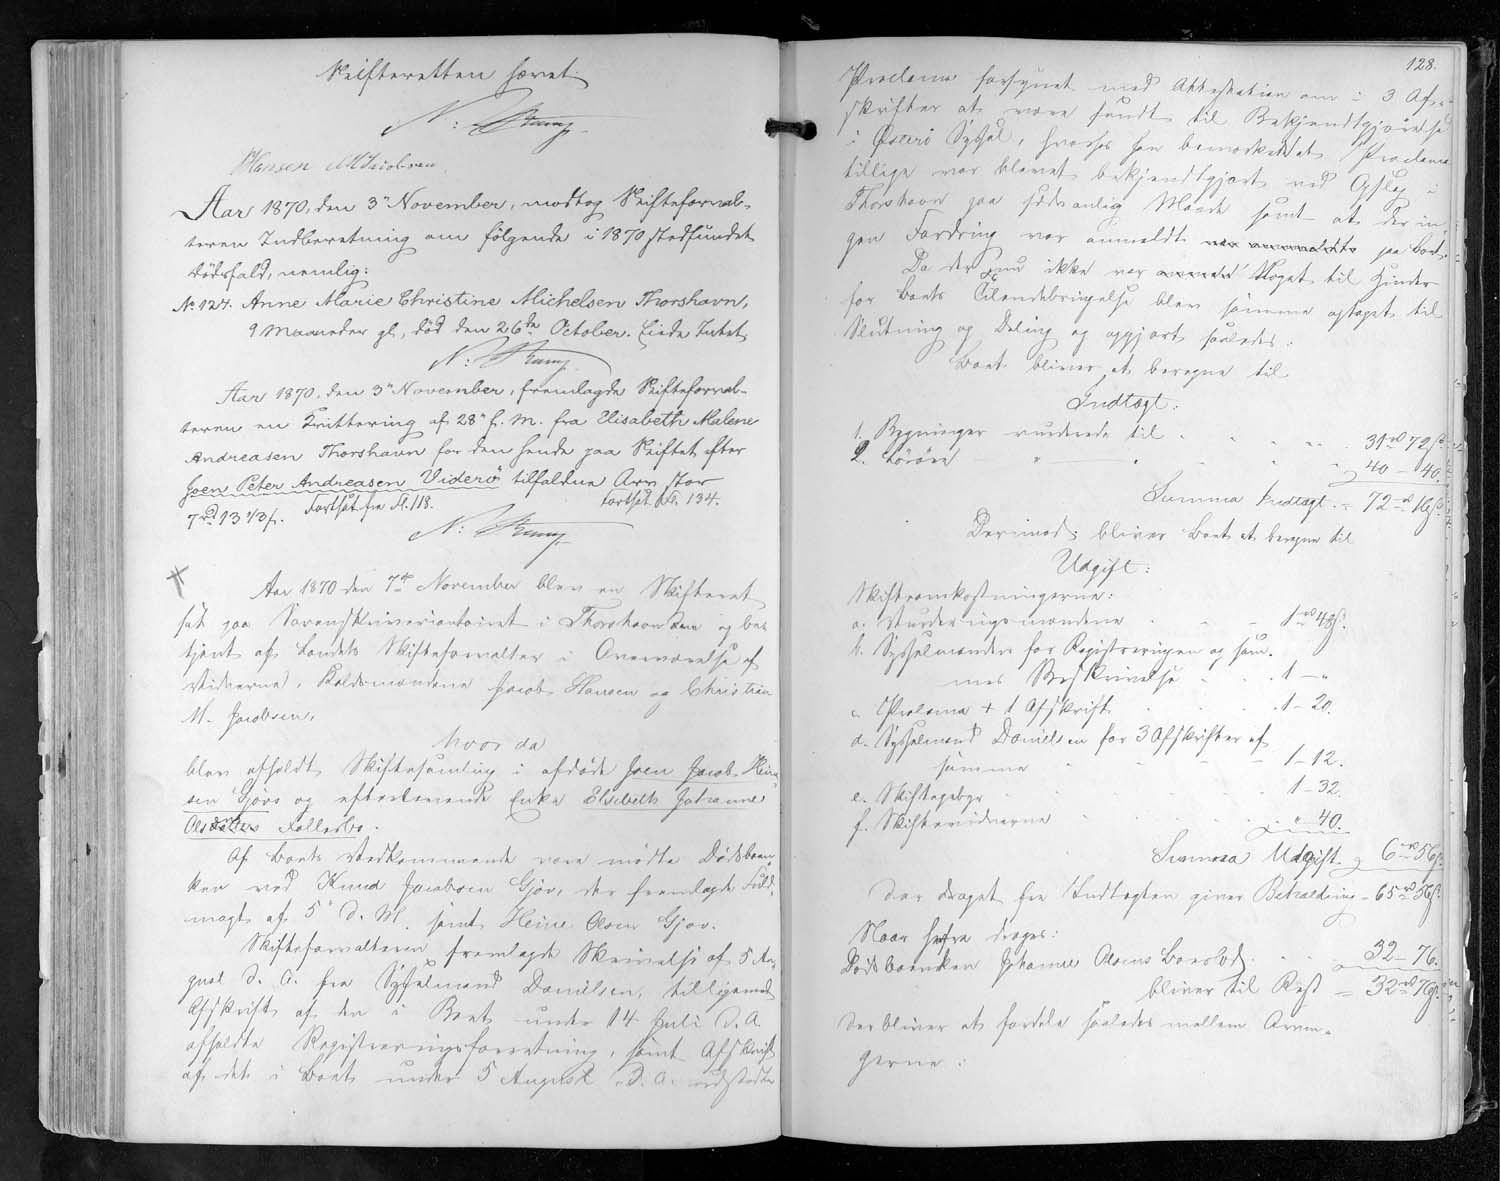 Skifteretten hævet.
N: Krung
Hansen MJacobsen
Aar 1870, den 3' November, modtog Skifteforval-
teren Indberetning om følgende i 1870 stedfundet
Dødsfald, nemlig:
No. 127. Anne Marie Christine Michelsen Thorshavn,
9 Maaneder gl, død den 26de October. Eiede Intet
Aar 1870, den 3' November, fremlagde Skifteforval-
teren en Kvittering af 28' f. M. fra Elisabeth Malene
Andreasen Thorshavn for den hende paa Skiftet efter
Joen Peter Andreasen Viderö tilfaldne Arv stor
7rd 13 1/3 f. Fortsat fra Fl. 118. Fortsat Fl. 134.
Aar 1870 den 7de November blev en Skifteret
sat paa Sorenskriveriontoiret i Thorshavn og be-
tjent af Landets Skifteforvalter i Overværelse af
Vidnerne, Koldsmændene Jacob Hansen og Christian
M. Jacobsen,
hvor da
blev afholdt Skiftesamling i afdøde Joen Jacob Hein-
sen Gjovs og efterlevende Enke Elsebeth Johanne
Olsdatters Fællesbo.
Af Boets Vedkommende vare mødte Dødsboen-
ken ved Knud Jacobsen Gjov, der fremlagde Fuld-
magt af 5' d. M. samt Heine Olsen Gjov.
Skifteforvalteren fremlagde Skrivelse af 5 Au-
gust d. A. fra Sysselmand Danielsen, tilligemed
Afskrift af den i Boet under 14 Juli d. A.
afholdte Registreringsforretning, samt Afskrift
af det i Boet under 5 August d. A. udstedte
128.
Proclama forsynet med Attestation om i 3 Af-
skrifter at være sendt til Bekjendtgjørelse
i Østerø Syssel, hvorhos han bemærkede at Proclama
tillige var blevet bekjendtgjort ved Opslag i
Thorshavn paa sædvanlig Maade samt at der in-
gen Fordring var anmeldt paa Boet.
Da der nu ikke var Noget til Hinder
for Boets Tilendebringelse blev samme optaget til
Slutning og Deling og opgjort saaledes:
Boet bliver at beregne til
Indtægt:
1. Bygninger vurderede til 31rd 72 s.
2. Løsøre " — " 40 - 40.
Summa Indtægt = 72rd 16 s.
Derimod bliver Boet at beregne til
Udgift:
Skifteomkostningerne:
a. Vurderingsmændene 1rd 48 s.
b. Sysselmanden for Registreringen og sam-
mes Beskrivelse 1 - "
c. Proclama + 1 Afskrift 1 - 20.
d. Sysselmand Danielsen for 3 Afskrifter af
samme 1 - 12.
e. Skiftegebyr 1 - 32.
f. Skiftevidnerne " - 40.
Summa Udgift = 6rd 56 s.
der draget fra Indtægten giver Beholdning = 65rd 56 s.
Naar herfra drages:
Dødsboenken Johanne Olsens Boeslod 32 - 76.
bliver til Rest = 32rd 76 s.
der bliver at fordele saaledes mellem Arvin-
gerne: